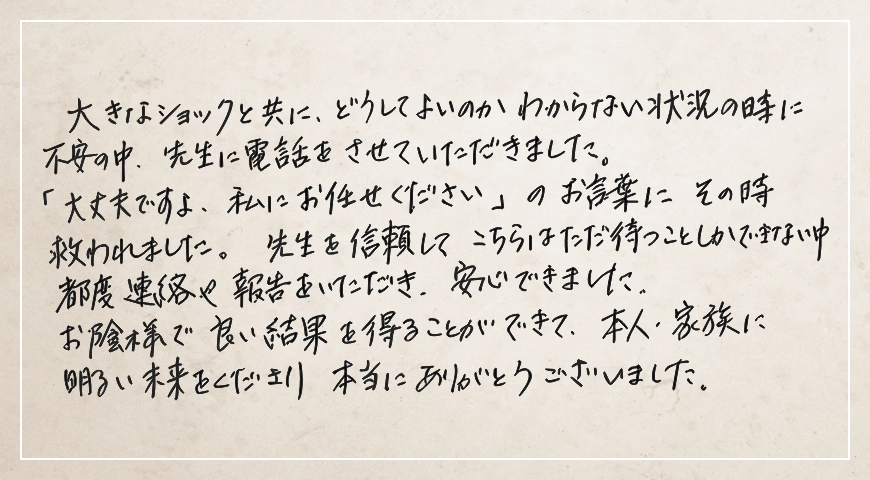 大きなショックと共に、どうしてよいのか わからない状況の時に
不安の中、先生に電話をさせていただきました。
「大丈夫ですよ、私にお任せください」のお言葉に その時
救われました。 先生を信頼して こちらはただ待つことしかできない中
都度連絡や 報告をいただき、安心できました。
お陰様で 良い結果を得ることができて、本人・家族に
明るい未来をくださり 本当にありがとうございました。